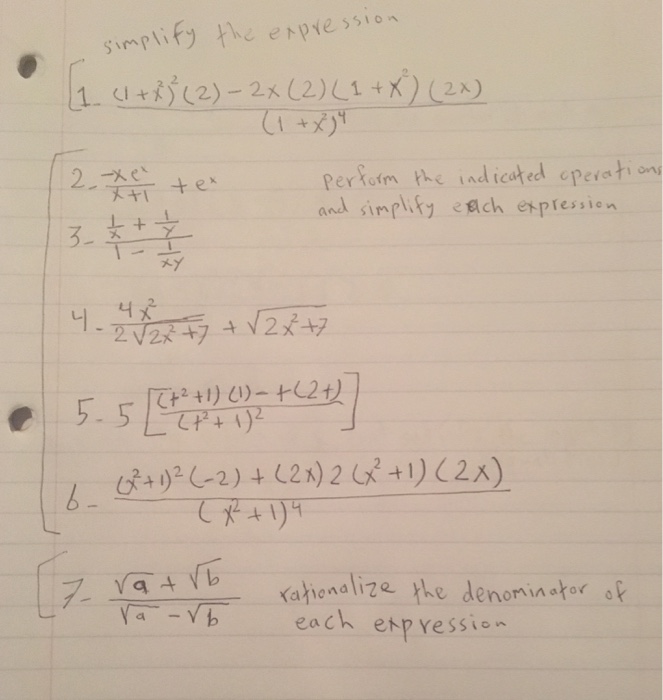 simplify the expression
1- (1+x²)²(2) - 2x(2)(1+x²)(2x) / (1+x²)⁴
2- -xeˣ / x+1 + eˣ perform the indicated operations
and simplify each expression
3- (1/x + 1/y) / (1 - 1/xy)
4- 4x² / 2√(2x²+7) + √(2x²+7)
5- 5[(t²+1)(1) - t(2t) / (t²+1)²]
6- (x²+1)²(-2) + (2x)2(x²+1)(2x) / (x²+1)⁴
7- √a + √b / √a - √b rationalize the denominator of
each expression